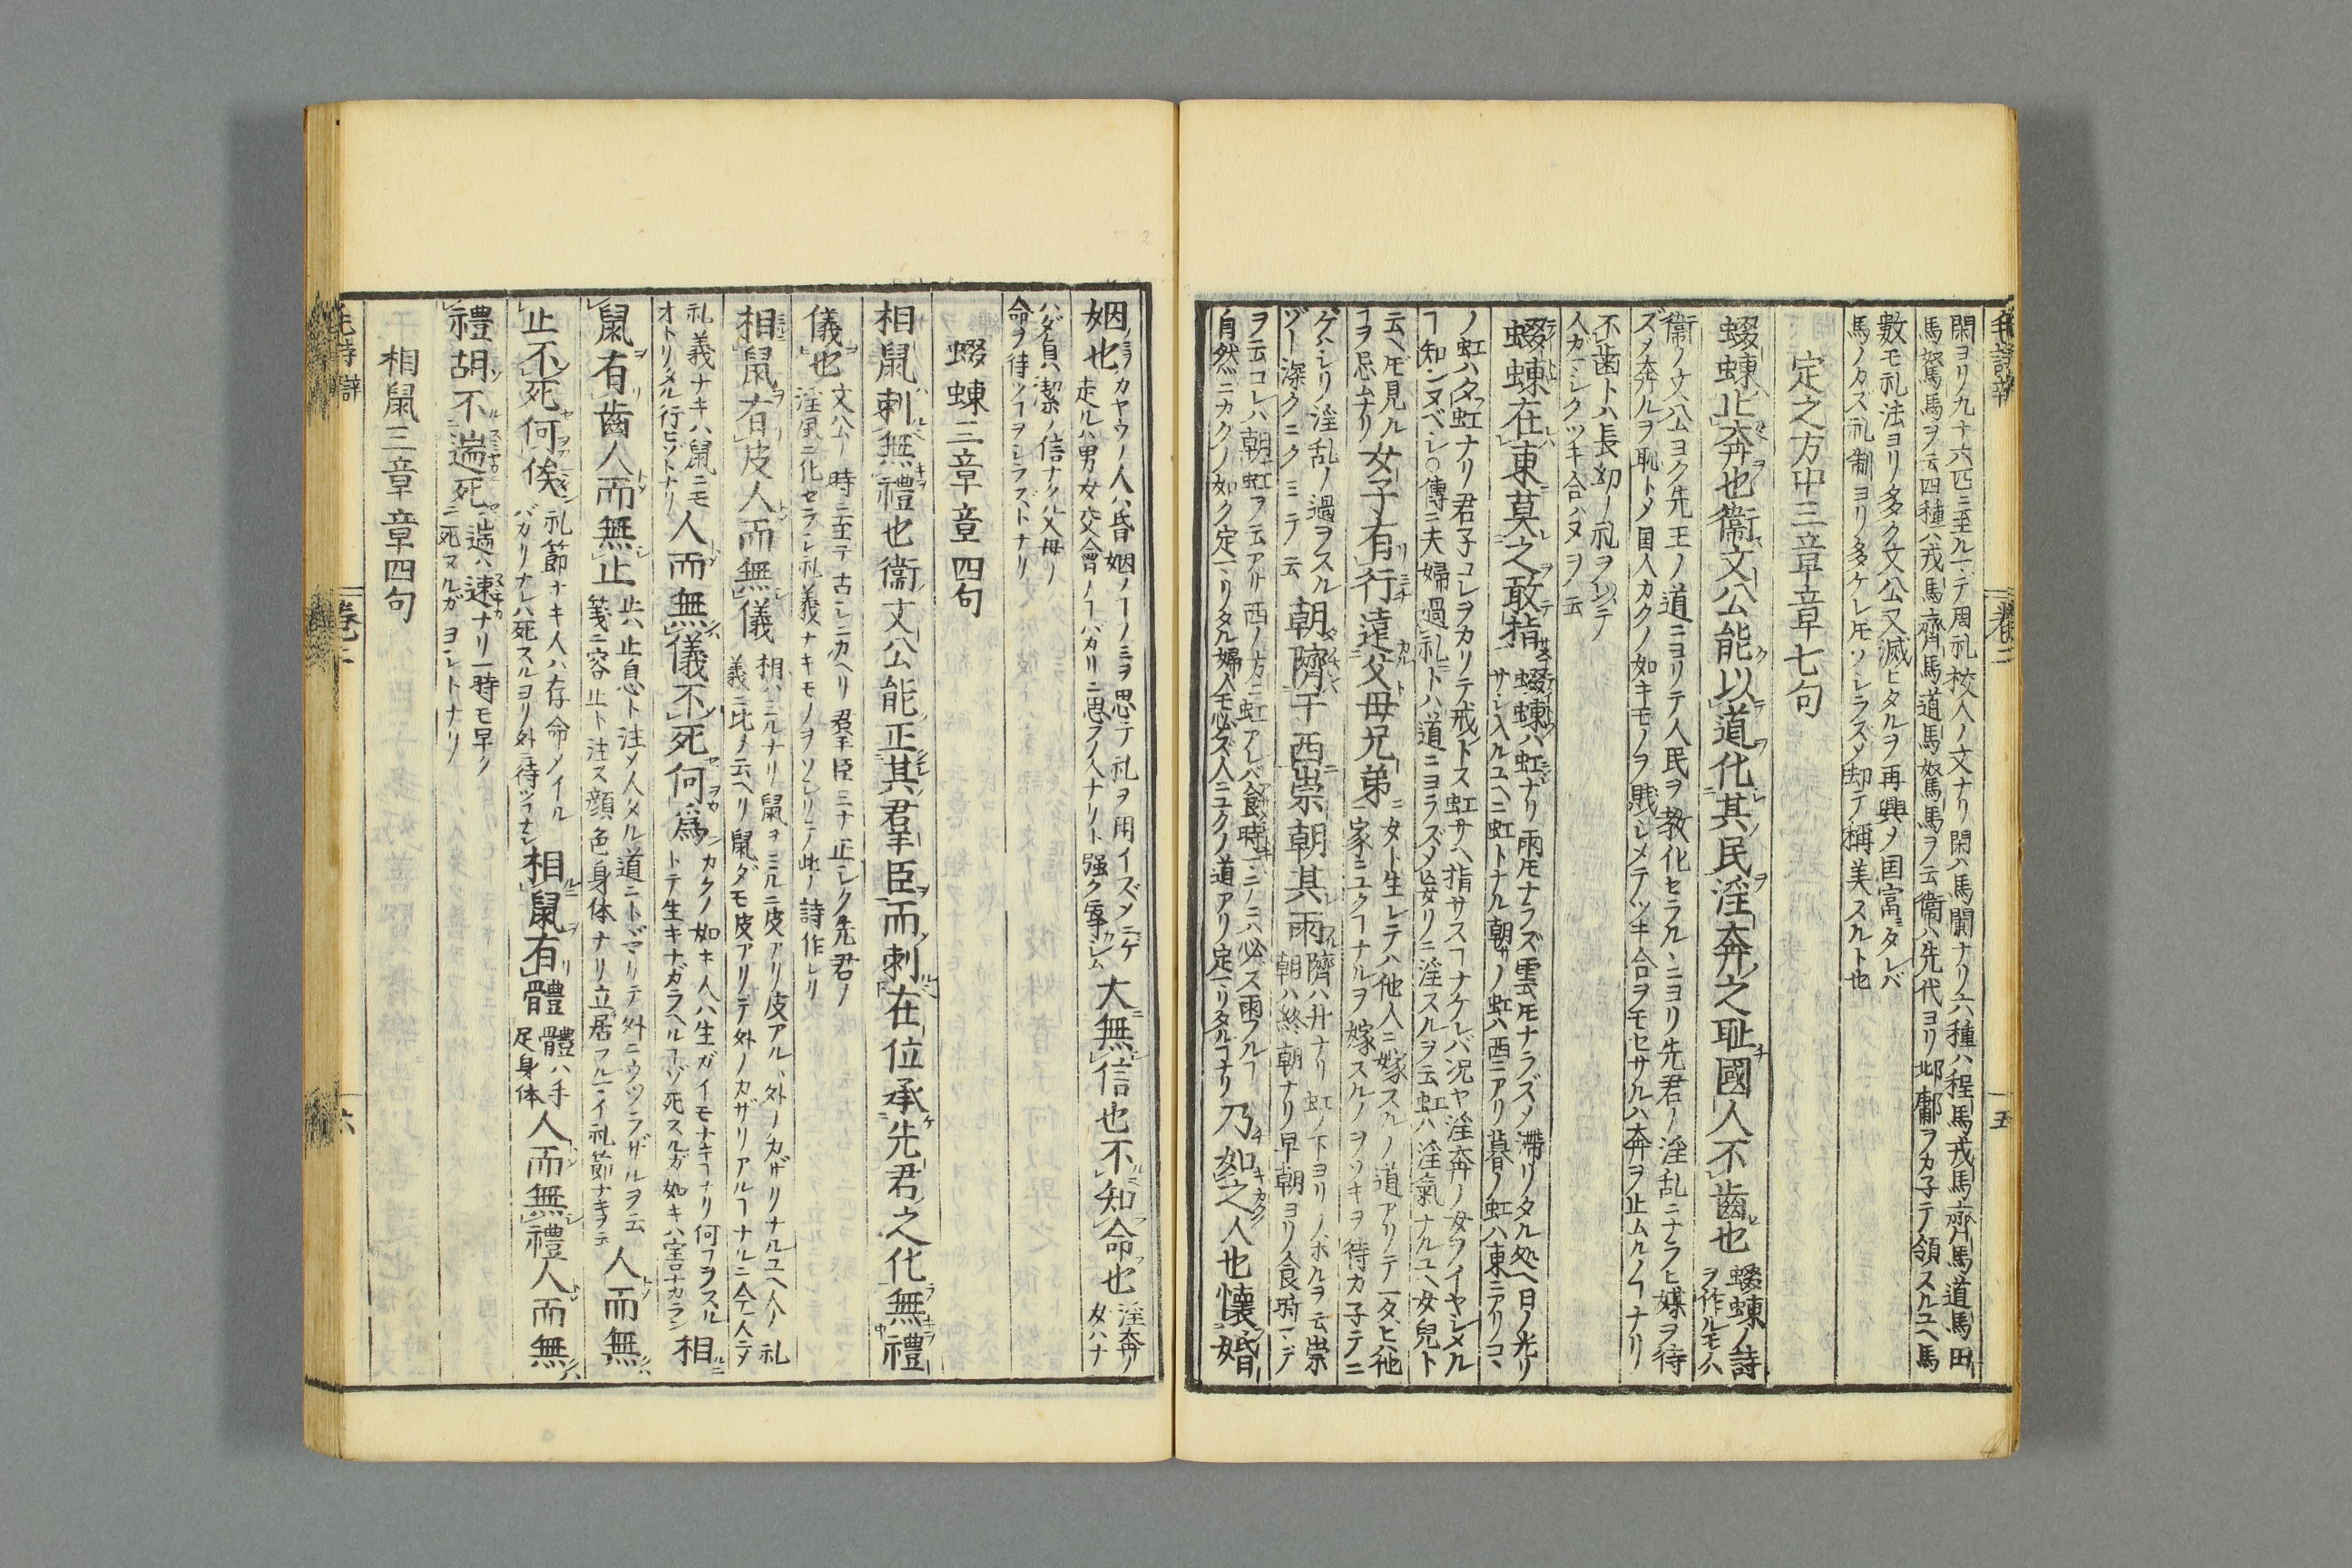 毛詩辯 卷二 十五
閑ヨリノ九十六匹ニ至ルマデ周礼校人ノ文ナリ閑ハ馬闌ナリ六種ハ程馬戎馬齊馬道馬田
馬駑馬ヲ云四種ハ戎馬齊馬道馬駑馬ヲ云衞ハ先代ヨリ邶鄘ヲカ子テ領スルユヘ馬
數モ礼法ヨリ多ク文公又滅ヒタルヲ再興メ国富ミタレバ
馬ノカズ礼制ヨリ多ケレ𪜈ソレラズメ却テ稱美スルト也
定之方中三章章七句
蝃蝀止奔也衞文公能以道化其民淫奔之耻國人不齒也
蝃蝀ノ詩
ヲ作ルモノハ
衞ノ文公ヨク先王ノ道ニヨリテ人民ヲ教化セラルヽニヨリ先君ノ淫乱ニナラヒ媒ヲ待
ズメ奔ルヲ恥トメ国人カクノ如キモノヲ賎シメテツキ合ヲモセサルハ奔ヲ止ムルノヿナリ
不齒トハ長幼ノ礼ヲシテ
人カマシクツキ合ハヌヲ云
蝃蝀在東莫之敢指
蝃蝀ハ虹ナリ雨𪜈ナラズ雲𪜈ナラズメ滯リタル処ヘ日ノ光リ
サシ入ルユヘニ虹トナル朝サノ虹ハ西ニアリ暮ノ虹ハ東ニアリコヽ
ノ虹ハタ虹ナリ君子コレヲカリテ戒トス虹サヘ指サスヿナケレバ況ヤ淫奔ノ女ヲノイヤシメル
ヿ知ンヌベシ○傳ニ夫婦過礼トハ道ニヨラズメ妄リニ淫スルヲ云虹ハ淫氣ナルユヘ女兒ト
云ヘ𪜈見ル
ヿヲ忌ムナリ
女子有行遠父母兄弟
タト生レテハ他人ニ嫁スルノ道アリテ一タヒハ他
家ニユクヿナルヲ嫁スルノヲソキヲ待カ子テニ
ゲハシリ淫乱ノ過ヲスル
ゾー深クニクミテ云
朝隮于西崇朝其雨
隮ハ升ナリ虹ノ下ヨリノホルヲ云崇
朝ハ終朝ナリ早朝ヨリ食時マデ
ヲ云コレハ朝虹ヲ云アサ西ノ方ニ虹アレバ食時マニハ必ズ雨フルヿ
自然ニカクノ如ク定マリタル婦人モ必ズ人ニユクノ道アリ定マリタルヿナリ
乃如之人也懷婚
姻也
カヤウノ人ハ昏姻ノヿノミヲ思テ礼ヲ用イズメニケ
走ルハ男女交會ノヿバカリニ思フ人ナリト強ク辱シム
大無信也不知命也
淫奔ノ
女ハナ
ハダ貞潔ノ信ナク父母ノ
命ヲ待ツヿヲシラズトナリ
蝃蝀三章章四句
相鼠刺無禮也衞文公能正其君羣臣而刺在位承先君之化無禮
儀也
文公ノ時ニ至テ古シニカヘリ君羣臣ミナ正シク先君ノ
淫風ニ化セラレ礼義ナキモノヲソシリテ此ノ詩作レリ
相鼠有皮人而無儀
相ハミルナリ鼠ヲミルニ皮アリ皮アルハ外ノカザリナルユヘ人ノ礼
義ニ比メ云ヘリ鼠ダモ皮アリテ外ノカザリアルヿナルニ今人ニテ
礼義ナキハ鼠ニモ
オトリメル行ゼゾトナリ
人而無儀不死何爲
カクノ如キ人ハ生ガイモナキヿナリ何ヿヲスル
トテ生キナガラヘルヿゾ死スルガ如キハ害ナカラン
相
鼠有齒人而無止
止ハ止息ト注メ人メル道ニトヾマリテ外ニウツラザルヲ云
箋ニ容止ト注ス顔色身体ナリ立居フルマイ礼節ナキヲ云
人而無
止不死何俟
礼節ナキ人ハ存命メイル
バカリナレハ死スルヨリ外ニ待ツヿナシ
相鼠有體
體ハ手
足身体
人而無禮人而無
禮胡不遄死
遄ハ速ナリ一時モ早ク
ニ死ヌルガヨシトナリ
相鼠三章章四句
毛詩辯 卷二 十六